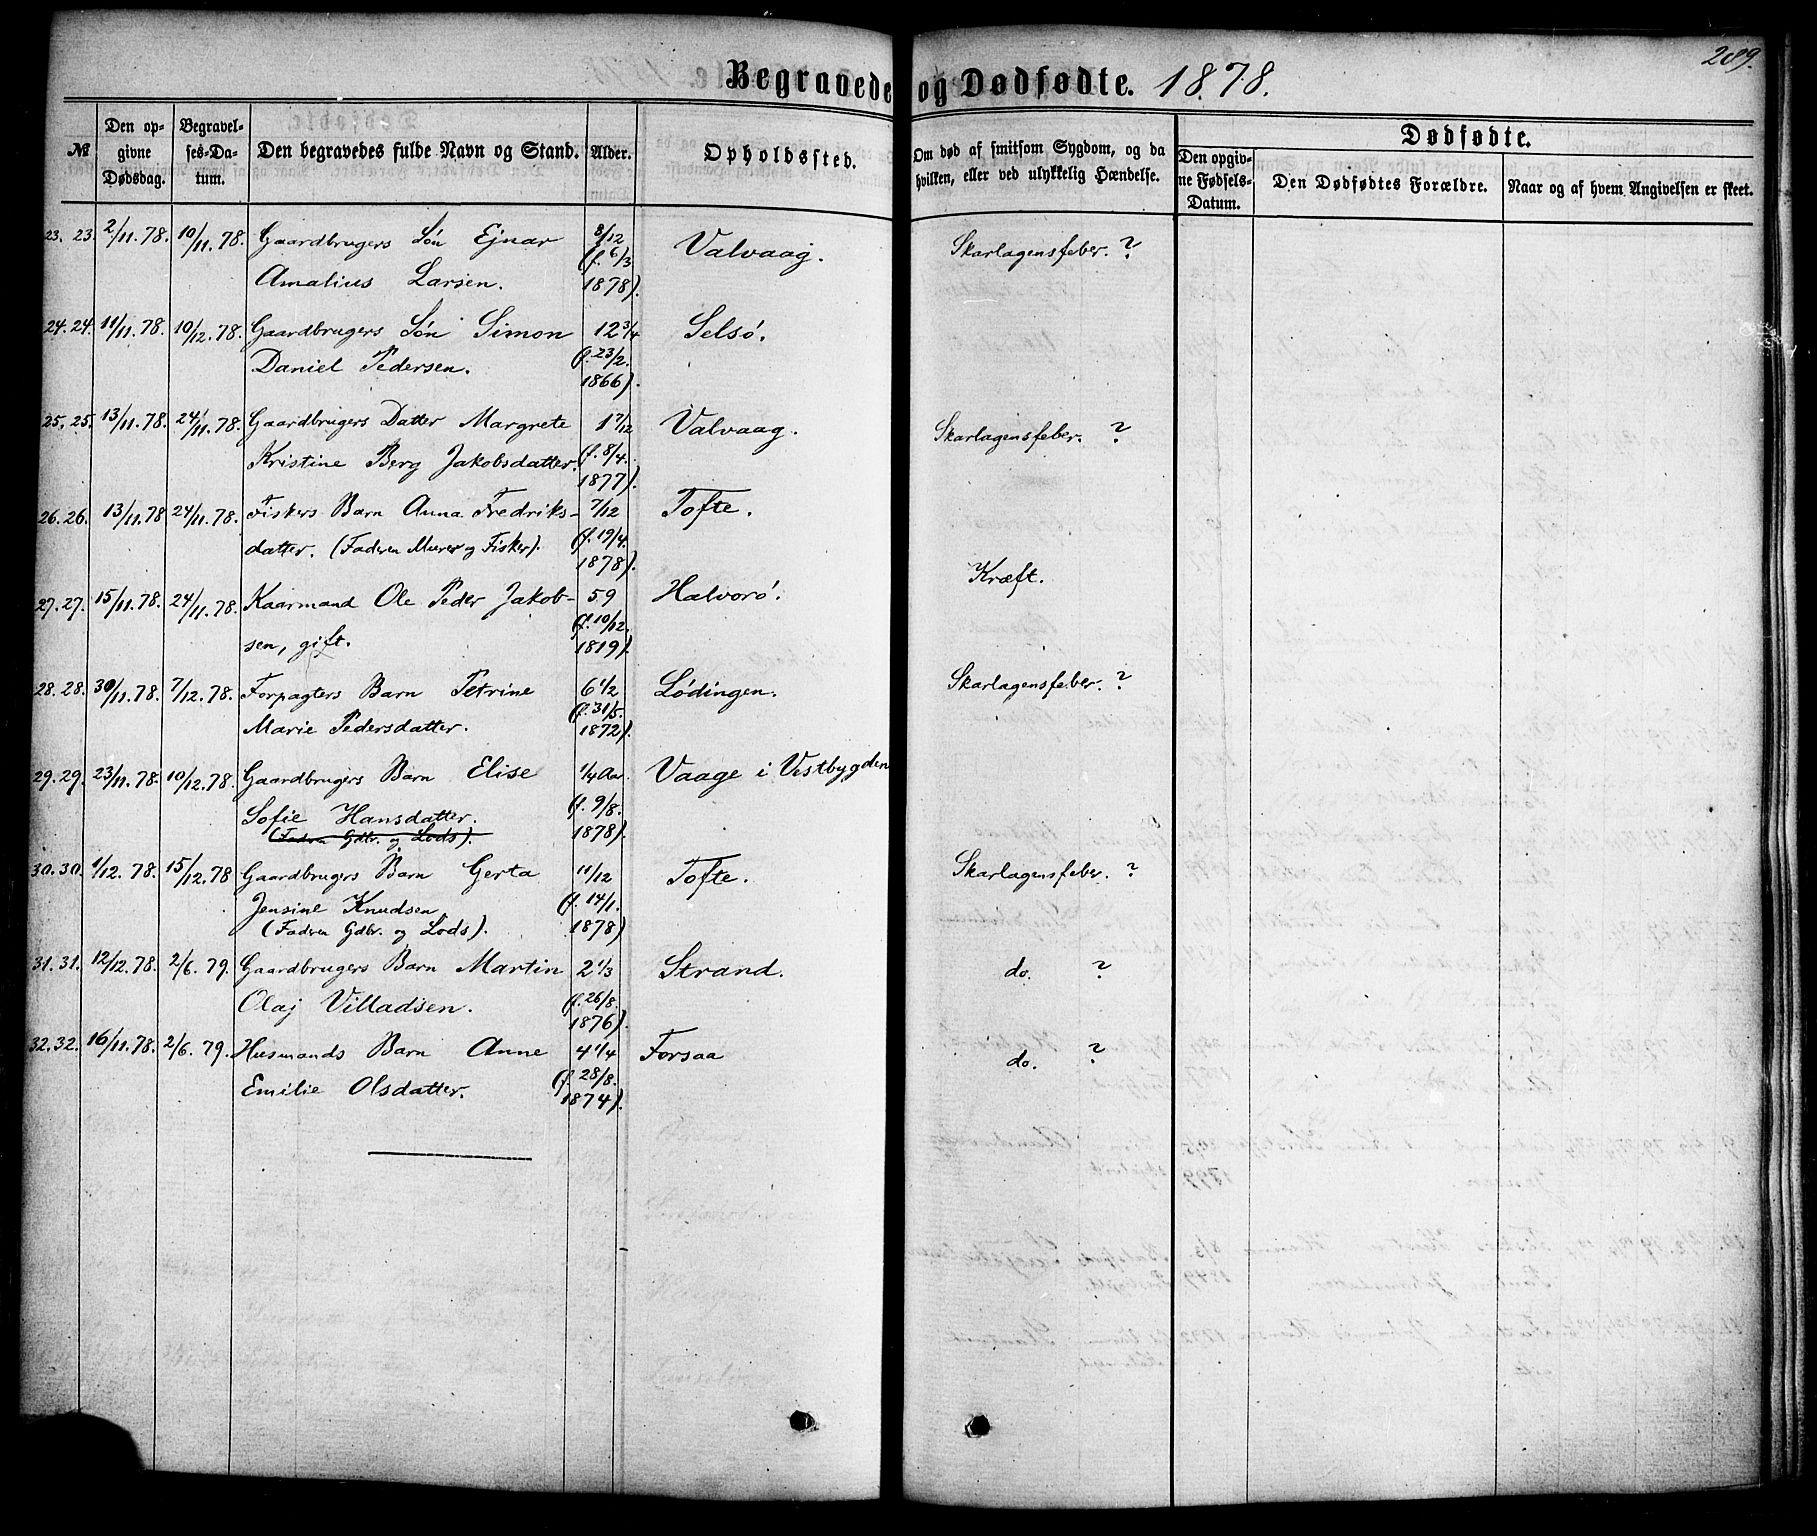 Begravede og Dødfødte. 1878.
209.
№
Den opgivne Dødsdag.
Begravelses-Datum.
Den begravedes fulde Navn og Stand.
Alder.
Opholdssted.
Om død af smitsom Sygdom, og da hvilken, eller ved ulykkelig Hændelse.
Dødfødte.
Den opgivne Fødsels-Datum.
Den Dødfødtes Forældre.
Naar og af hvem Angivelsen er skeet.
23. 23. 2/11. 78. 10/11. 78. Gaardbrugers Søn Ejnar 8/12 Valvaag. Skarlagensfeber. ?
Amalius Larsen. (f. 6/3 1878).
24. 24. 11/11. 78. 10/12. 78. Gaardbrugers Søn Simon 12 3/4 Selsø.
Daniel Pedersen. (f. 23/2. 1866).
25. 25. 13/11. 78. 24/11. 78. Gaardbrugers Datter Margrete 1 7/12 Valvaag. Skarlagensfeber. ?
Kristine Berg Jakobsdatter. (f. 8/4. 1877).
26. 26. 13/11. 78 24/11. 78. Fiskers Barn Anna Fredriks- 7/12 Tofte.
datter. (Faderen Murer og Fisker). (f. 19/4. 1878).
27. 27. 15/11. 78. 24/11. 78. Kaarmand Ole Peder Jakob- 59 Halvorö. Kræft.
sen, gift. (f. 10/12. 1819).
28. 28. 30/11. 78. 7/12. 78. Forpagters Barn Petrine 6 1/2 Lødingen. Skarlagensfeber. ?
Marie Pedersdatter. (f. 31/5. 1872).
29. 29. 23/11. 78. 10/12. 78. Gaardbrugers Barn Elise 1/4 Aar. Vaage i Vestbygden
Sofie Hansdatter. (f. 9/8. 1878).
(Faderen Gdbr. og Lods).
30. 30. 1/12. 78. 15/12. 78 Gaardbrugers Barn Gerta 11/12 Tofte. Skarlagensfeber. ?
Jensine Knudsen (f. 14/1. 1878)
(Faderen Gdbr. og Lods).
31. 31. 12/12. 78. 2/6. 79. Gaardbrugers Barn Martin 2 1/3 Strand. do. ?
Olaj Villadsen. (f. 26/8. 1876).
32. 32. 16/11. 78. 2/6. 79. Husmands Barn Anne 4 1/4 Forsaa do. ?
Emilie Olsdatter. (f. 28/8. 1874).